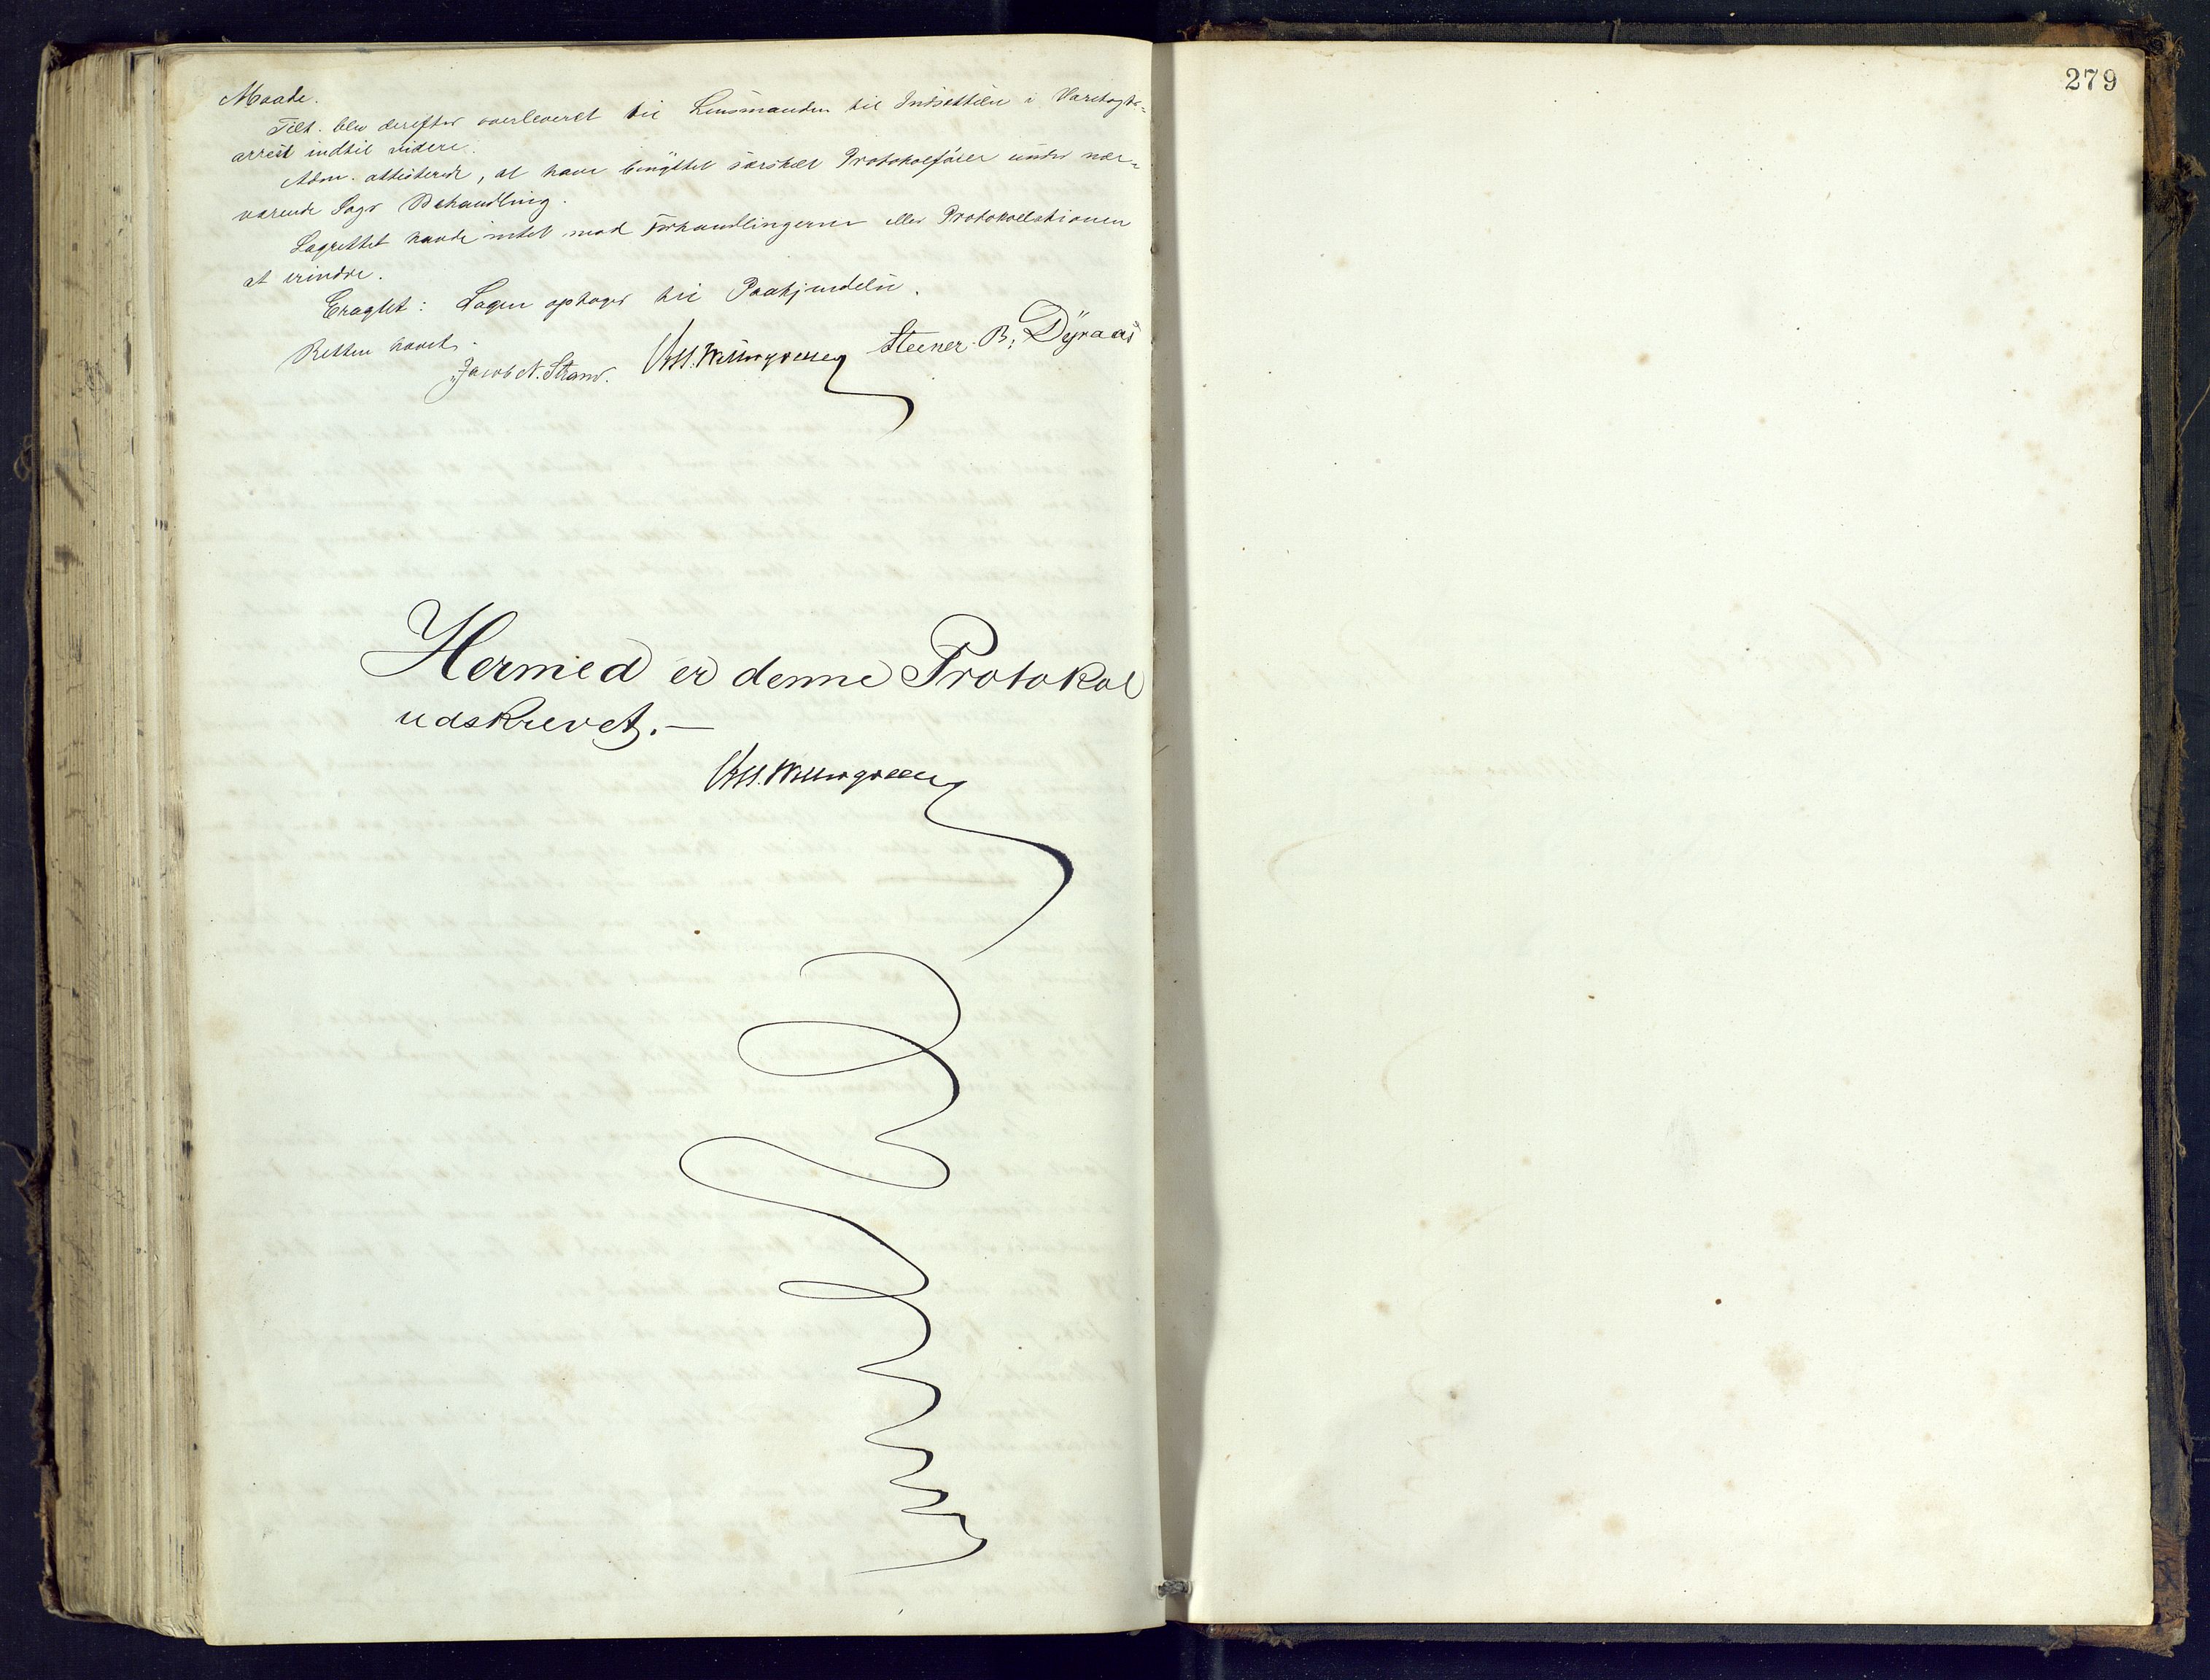 Maade.
Tilt. blev derefter overleveret til Lensmanden til Indsættelse i Varetægts=
arrest indtil videre.
Adm. attesterede, at have benyttet særskilt Protokolfører under nær=
værende Sags Behandling.
Lagrettet havde intet mod Forhandlingerne eller Protokollationen
at erindre.
Eragtet: Sagen optages til Paakjendelse.
Retten hævet.
Jacob N. Strand. Steener. B. Dyraas
Hermed er denne Protokol
udskrevet.—
279